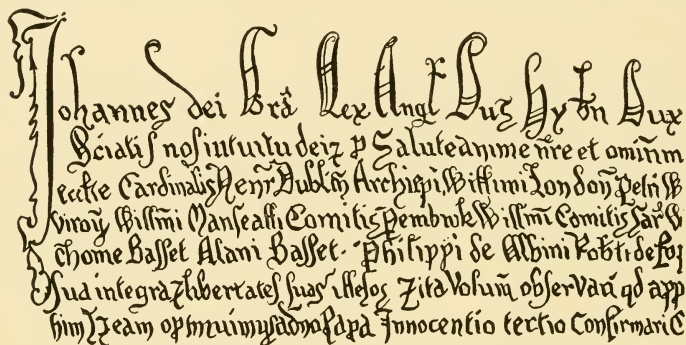 Johannes dei Grã Rex Angl Duz Hybn Dux
Sciatis nos intuitu dei ⁊ p Salute anime nr̃e et omium
eccłe Cardinalis Henr̃ Dublin̄ Archiep̃i Willmi London̄ Petri W
Willm̃i Maresalli Comitis Pembrok Willm̃i Comitis Sar̃ W
Thome Basset Alani Basset. Philippi de Albini Robti de
Sua integra ⁊ libertates suas illesos ⁊ ita volum̄ observari qd app
Papa Innocentio tertio Confirmari